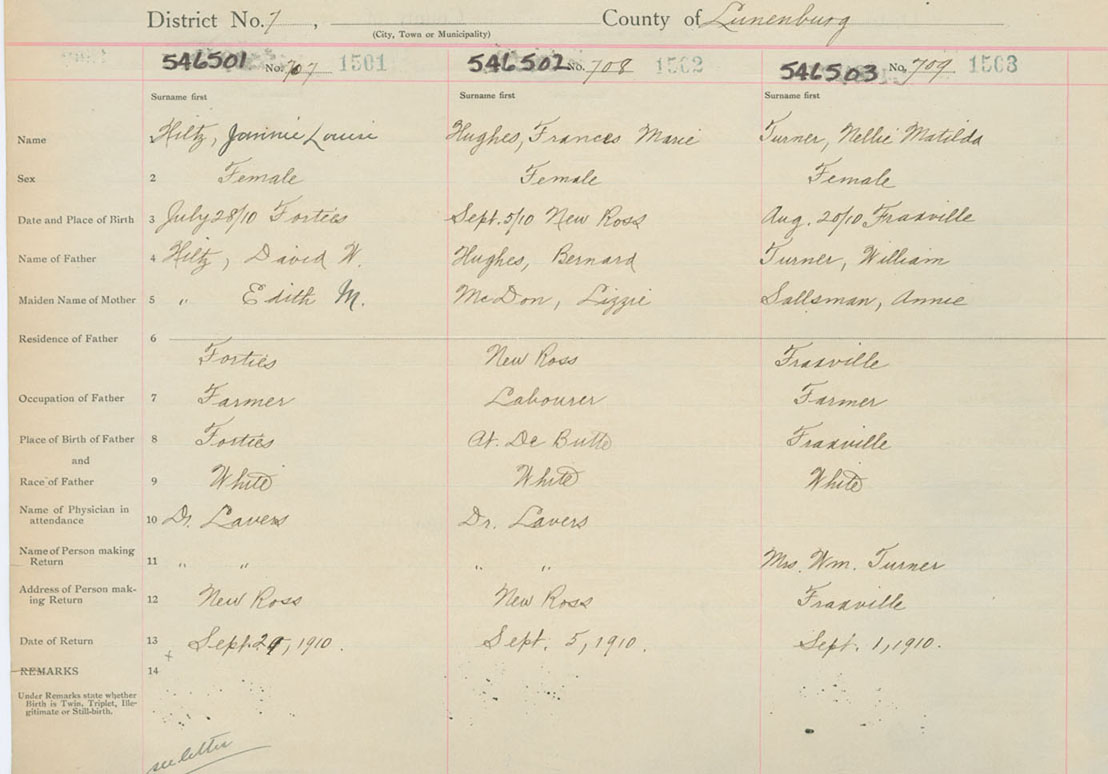 District No. 7, County of Lunenburg
(City, Town or Municipality)
546501 No. 707 1501 546502 No. 708 1502 546503 No. 709 1503
Surname first Surname first Surname first
Name 1 Hiltz, Jannie Louise Hughes, Frances Marie Turner, Nellie Matilda
Sex 2 Female Female Female
Date and Place of Birth 3 July 28/10 Forties Sept. 5/10 New Ross Aug. 20/10 Fraxville
Name of Father 4 Hiltz, David W. Hughes, Bernard Turner, William
Maiden Name of Mother 5 " Edith M. McDon, Lizzie Sallsman, Annie
Residence of Father 6
Forties New Ross Fraxville
Occupation of Father 7 Farmer Labourer Farmer
Place of Birth of Father 8 Forties At. De Butte Fraxville
and
Race of Father 9 White White White
Name of Physician in
attendance 10 Dr. Lavers Dr. Lavers
Name of Person making
Return 11 " " " " Mrs. Wm. Turner
Address of Person mak-
ing Return 12 New Ross New Ross Fraxville
Date of Return 13 Sept. 29, 1910. Sept. 5, 1910. Sept. 1, 1910.
REMARKS 14
Under Remarks state whether
Birth is Twin, Triplet, Ille-
gitimate or Still-birth.
see letter